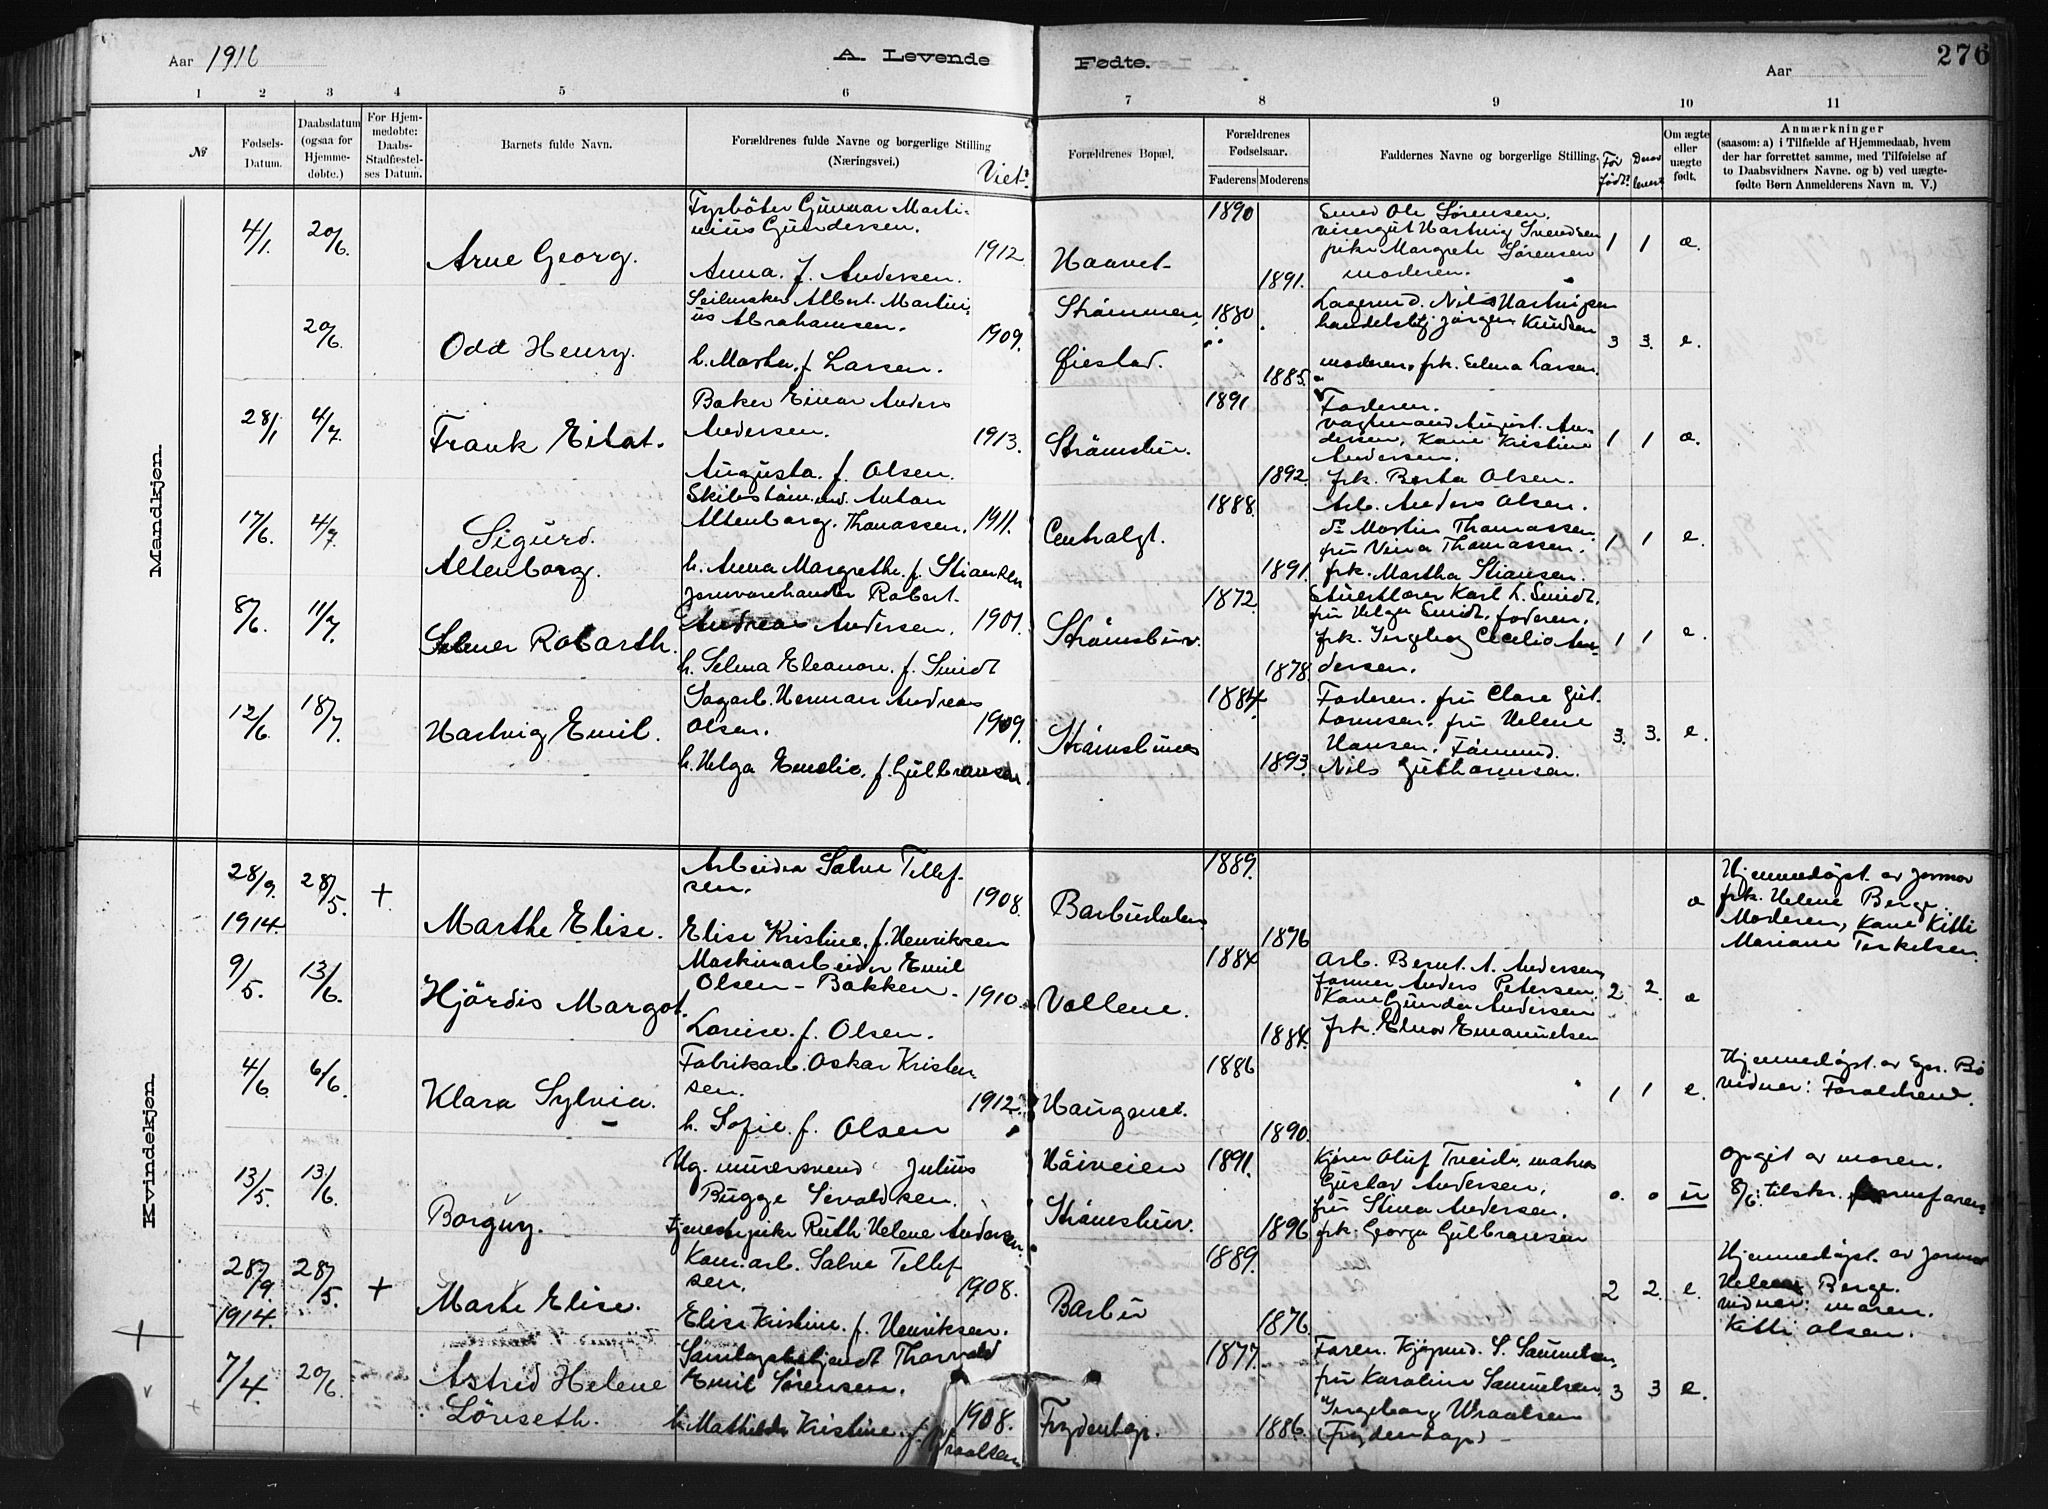 Aar 1916
A. Levende
Fødte.
Aar
276
1 2 3 4 5 6 7 8 9 10 11
№
Fødsels-
Datum.
Daabsdatum
(ogsaa for
Hjemme-
døbte.)
For Hjem-
medøbte:
Daabs-
Stadfæstel-
ses Datum.
Barnets fulde Navn.
Forældrenes fulde Navne og borgerlige Stilling
(Næringsvei.)
Viet.
Forældrenes Bopæl.
Forældrenes
Fødselsaar.
Faderens
Moderens
Faddernes Navne og borgerlige Stilling.
Før
født
Derav
levert
Om ægte
eller
uægte
født.
Anmærkninger
(saasom: a) i Tilfælde af Hjemmedaab, hvem
der har forrettet samme, med Tilføielse af
to Daabsvidners Navne. og b) ved uægte-
fødte Børn Anmelderens Navn m. V.)
Mandkjøn.
4/1.
20/6.
Arne Georg.
Fyrbøter Gunnar Marti-
nius Gundersen.
Anna. f. Andersen.
1912.
Haavet
1890
1891.
Smed Ole Sørensen.
visergut Hartvig Svendsen
pike Margrete Sørensen
moderen.
1 1 æ.
20/6.
Odd Henry.
Albert Martin-
us Abrahamsen.
h. Martha. f. Larsen.
1909.
Strømmen,
Øiestad.
1880
1885.
Lagermd. Nils Hartvigsen
handelsbtj. Jørgen Knudsen
moderen, frk. Selma Larsen.
3 3. e.
28/1
4/7.
Frank Eilat.
Baker Einar Anders
Andersen.
Augusta. f. Olsen.
1913.
Strømsbu.
1891
1892.
Faderen.
vagtmand August An-
dersen, Kone Kristine
Andersen.
frk. Berta Olsen.
1 1 æ.
17/6.
4/7.
Sigurd.
Altenborg.
Skibstøm.md. Anton
Altenborg. Thomassen.
h. Anna Margrethe. f. Stiansen
1911.
Centralgt.
1888.
1891.
Arb. Anders Olsen.
do Martin Thomassen.
fru Vina Thomassen.
frk. Martha Stiansen.
1 1 e.
8/6.
11/7.
Selmer Robarth.
Jernvarehandler Robert
Andreas Andersen.
h. Selma Eleanore. f. Smidt
1901.
Strømsbuv.
1872.
1878.
Karl L. Smidt.
fru Helga Smidt, faderen.
frk. Ingeborg Cecelie An-
dersen.
1 1 e.
12/6.
18/7.
Hartvig Emil.
Sagarb. Herman Andreas
Olsen.
h. Helga Emelie. f. Gulbransen.
1909.
Strømsbunes
1884.
1893.
Faderen. fru Clare Gut-
tormsen. fru Helene
Hansen. Tømmd.
Nils Guthormsen.
3. 3. e.
Kvindekjøn.
28/9.
1914.
28/5.
+
Marthe Elise.
Arbeider Salve Tellef-
sen.
Elise Kristine. f. Henriksen
1908.
Barbudalen
1889.
1876
æ
Hjemmedøpt. av jormor
frk. Helene Berge.
Moderen, Kone Kitti
Mariane Terkelsen.
9/5.
13/6.
Hjördis Margot.
Maskinarbeider Emil
Olsen - Bakken.
Lovise. f. Olsen.
1910.
Vollene.
1884
1884.
Arb. Bernt. A. Andersen,
former Anders Petersen.
Kone Gunda Andersen
frk. Elnor Emanuelsen
2 2. æ
4/6.
6/6.
Klara Sylvia.
Fabrikarb. Oskar Kristen-
sen.
h. Sofie. f. Olsen
1912.
Haugenet.
1886
1890.
1 1 e.
Hjemmedøpt. av Spr. Bø
vidner: Forældrene.
13/5.
13/6.
Borgny.
Ug. murersvend Julius
Bugge Sevaldsen.
Tjenestepike Ruth Helene Andersen.
Håiveien
Strømsbuv.
1891.
1896
Gustav Andersen.
fru Stina Andersen.
frk. Georga Gulbransen
o. o u
Opgit av moren.
8/6. tilskr.
28/9.
1914.
28/5.
+
Marte Elise.
Kom.arb. Salve Tellef-
sen.
Elise Kristine. f. Henriksen.
1908.
Barbu
1889.
1876.
2 2. e.
Hjemmedøpt. av jormor
Helene Berge.
vidner: moren.
Kitti Olsen.
+
7/4.
20/6.
Astrid Helene
Lönseth.
Samlagsbetjendt Thorvald
Emil Sørensen.
h. Mathilde Kristine. f. Wraalsen
1908.
Frydenhap.
1877.
1886.
Faren. Kjøpmd. S. Samuelsen,
fru Karoline Samuelsen,
Ingeborg Wraalsen
(Frydenhap)
3 3 e.